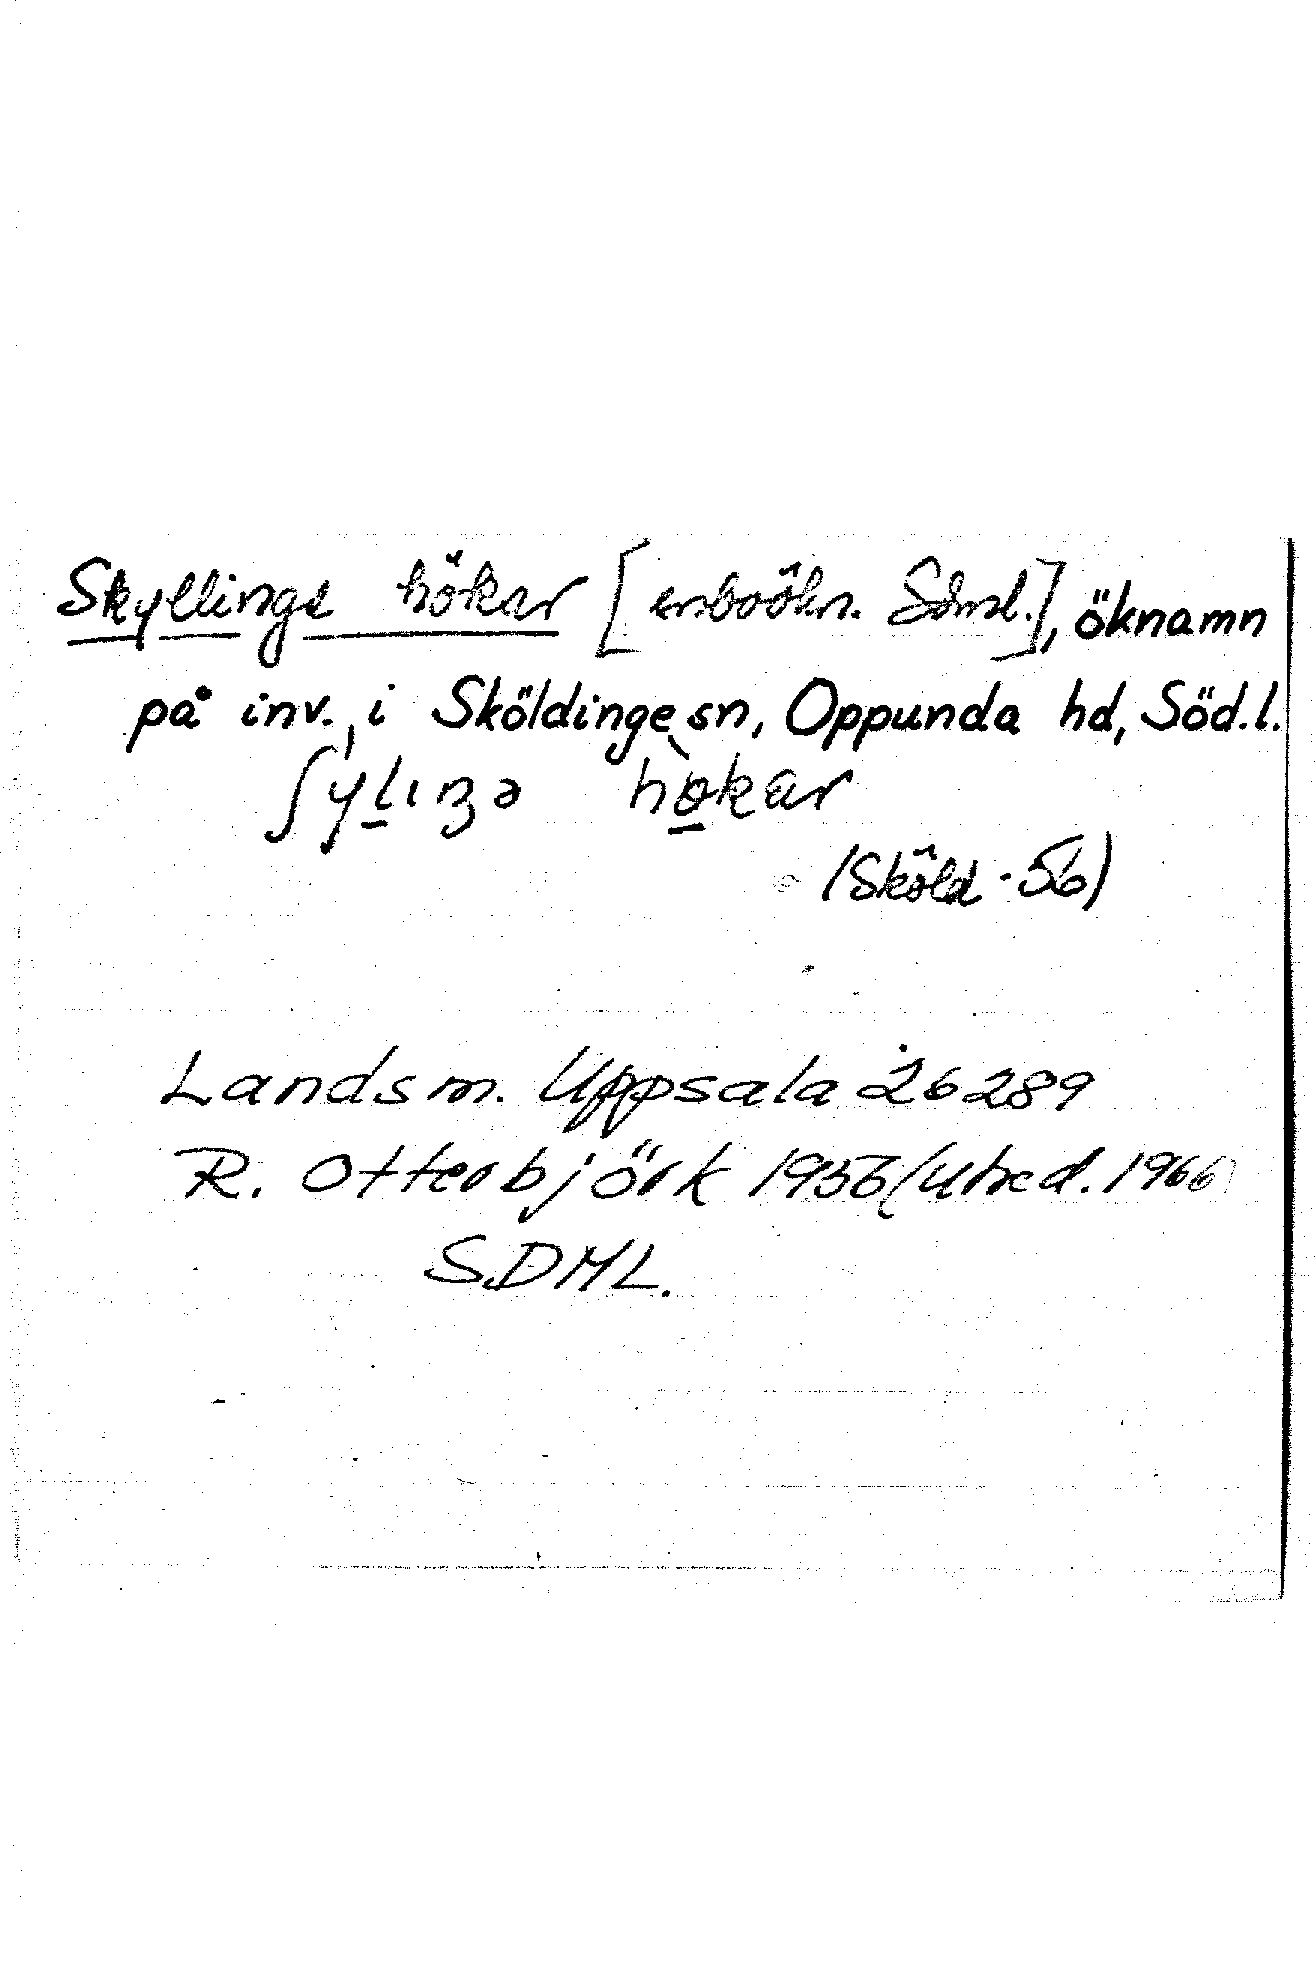 Skyllinge hökar [snboökn. Sdml.], öknamn
på inv. i Sköldinge sn, Oppunda hd, Söd.l.
ʃylıŋə hökar
(Sköld -56)
Landsm. Uppsala 26289
R. Otterbjörk 1956 (utred. 1966)
SDML.